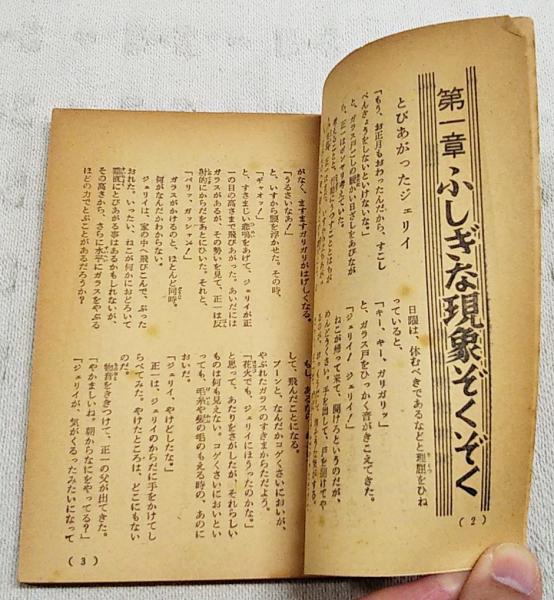 第一章 ふしぎな現象ぞくぞく
とびあがったジェリイ
「もう、お正月もおわったんだから、すこし
べんきょうをしないといけないな。」
と、ガラス戸ごしの暖かい日ざしをあびなが
ら、正一はボンヤリ考えていた。
日曜は、休むべきであるなどと理屈をひね
っていると、
「キー、キー、ガリガリッ」
と、ガラス戸をひっかく音がきこえてきた。
「ジェリイ! ジェリイか」
ねこが帰って来て、開けろというのだが、
めんどうくさい。手を出して、戸を開けてや
(2)
がなく、ますますガリガリがはげしくなる。
「うるさいなあ!」
と、いすから腰を浮かせた。その時、
「ギャオッ!」
と、すさまじい悲鳴をあげて、ジェリイが正
一の目の高さまで飛びあがった。あいだには
ガラスがあるが、その勢いを見て、正一は反
射的にからだをあとにひいた。それと、
「バリッ、ガッシャーン!」
ガラスがかけるのと、ほとんど同時。
何がなんだかわからない。
ジェリイは、家の中へ飛びこんで、ぶった
おれた。いったい、ねこが何かにおどろいて
垂直にとびあがる事はあるかもしれないが、
その高さから、さらに水平にガラスをやぶる
ほどの力でとぶことがあるだろうか?
して、飛んだことになる。
プーンと、なんだかコゲくさいにおいが、
やぶれたガラスのすきまからただよう。
「花火でも、ジェリイにほうったのかな。」
と思って、あたりをさがしたが、それらしい
ものは何も見えない。コゲくさいにおいとい
っても、毛糸や髪の毛のもえる時の、あのに
おいだ。
「ジェリイ、やけどしたな。」
正一は、ジェリイのからだに手をかけてし
らべてみた。やけたところは、どこにもない
のだ。
物音をききつけて、正一の父が出てきた。
「やかましいね。朝からなにをやってる?」
「ジェリイが、気がくるったみたいになって
(3)